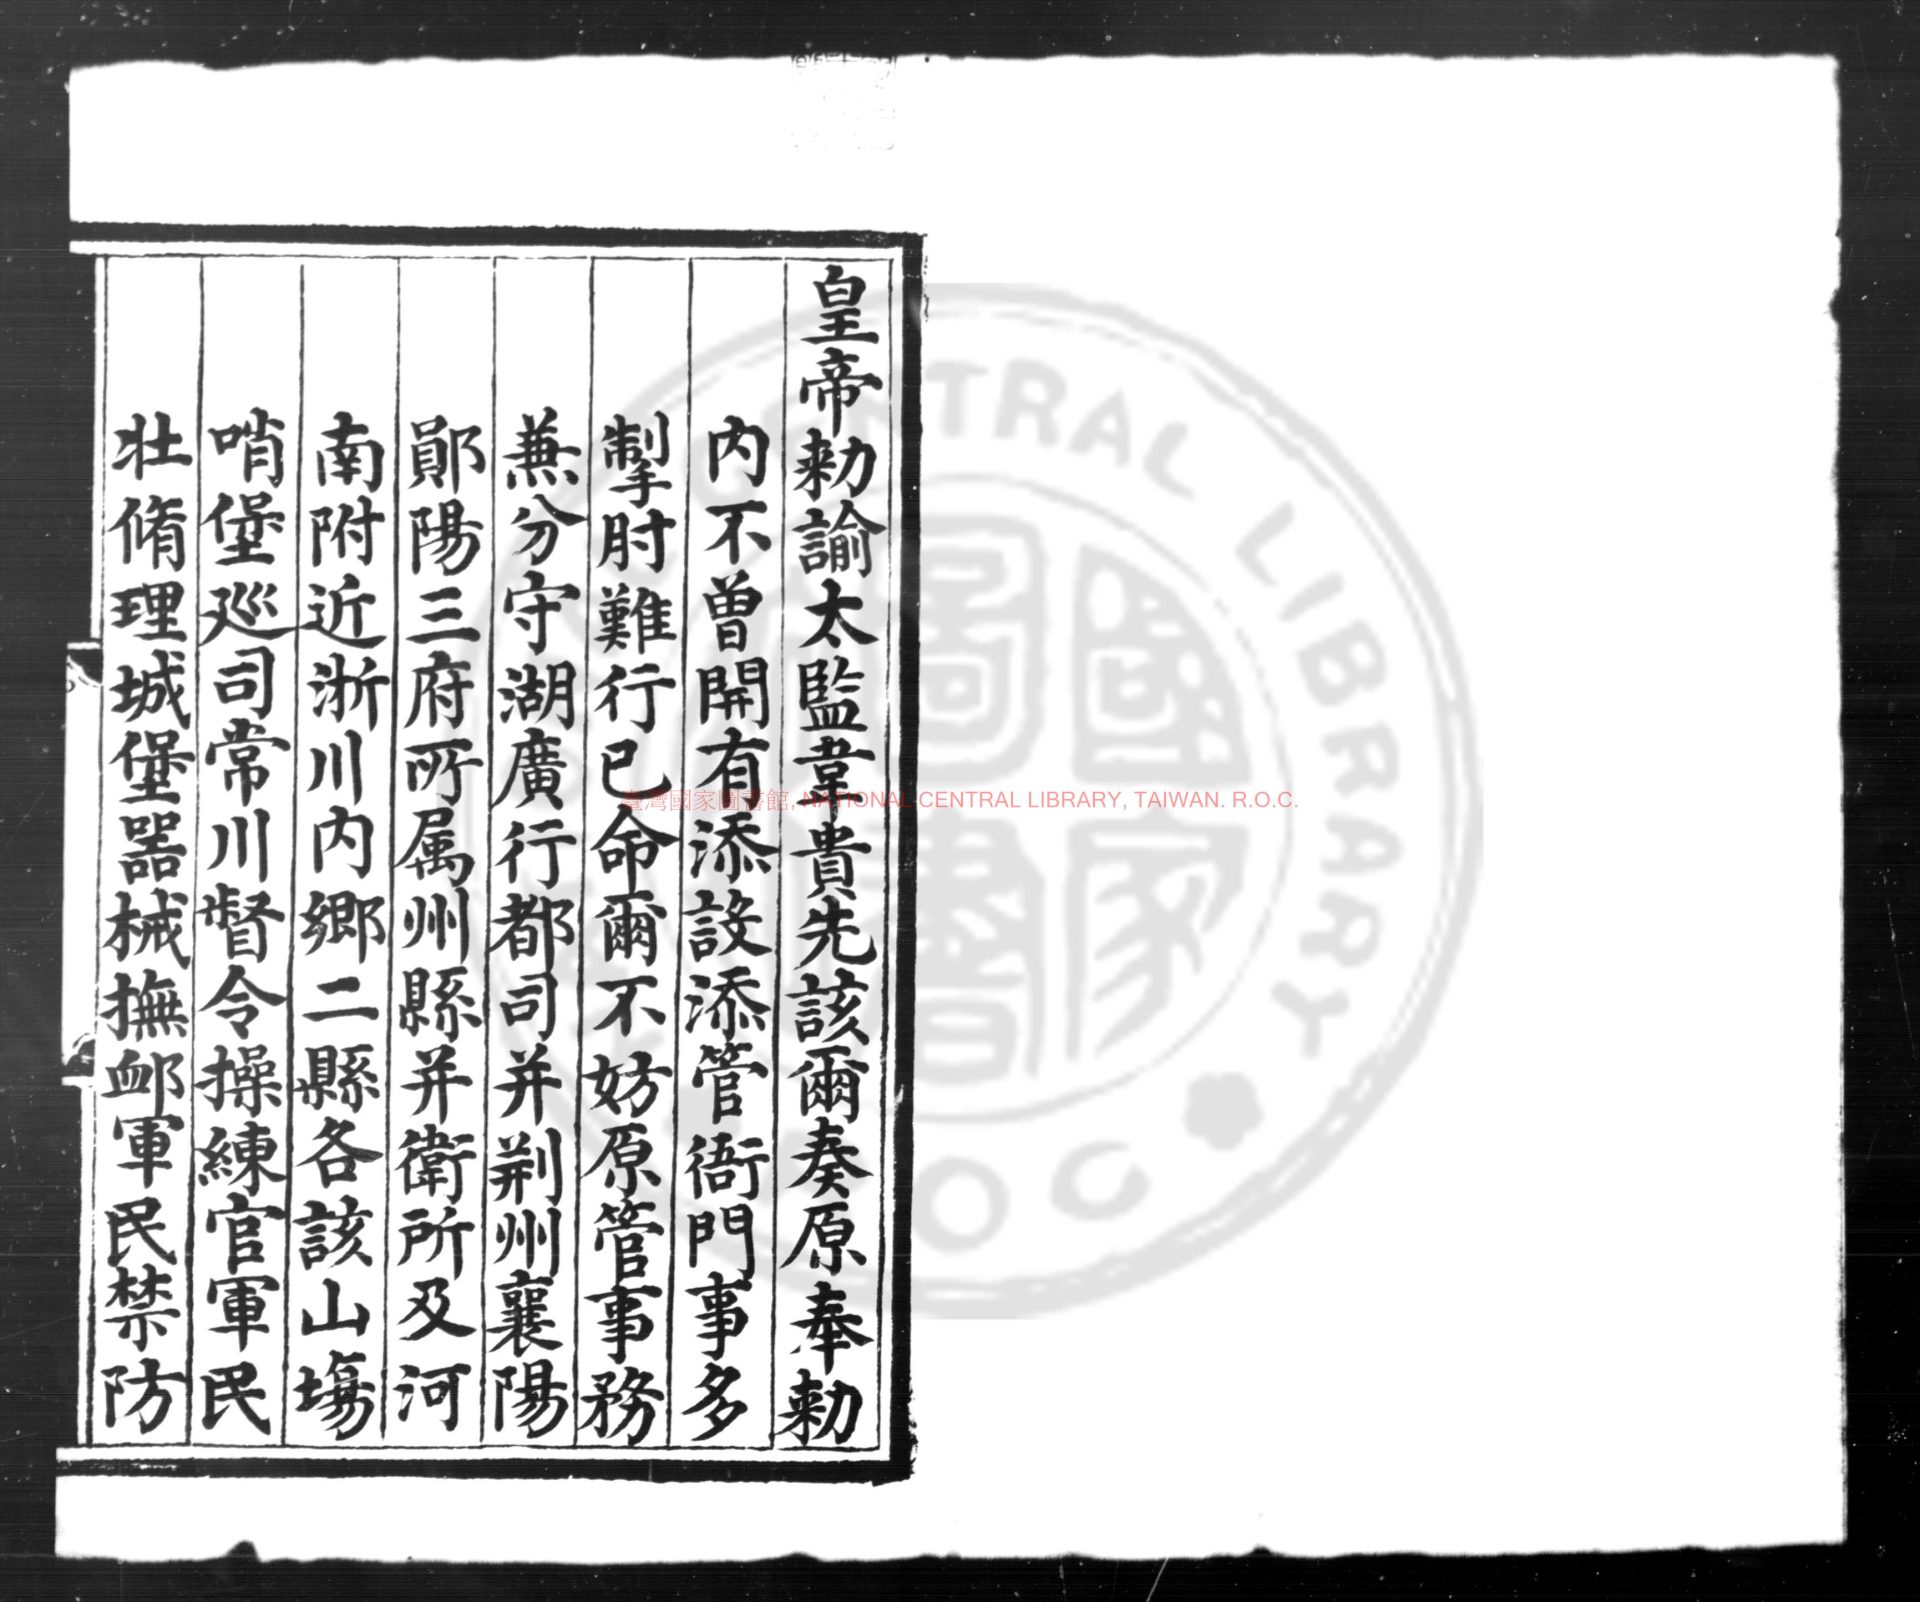 皇帝勑諭太監韋貴先該爾奏原奉勑
内不曾開有添設添管衙門事多
掣肘難行已命爾不妨原管事務
兼分守湖廣行都司并荆州襄陽
鄖陽三府所属州縣并衛所及河
南附近淅川内鄉二縣各該山塲
哨堡廵司常川督令操練官軍民
壮脩理城堡器械撫卹軍民禁防
臺灣國家圖書館, NATIONAL CENTRAL LIBRARY, TAIWAN. R.O.C.